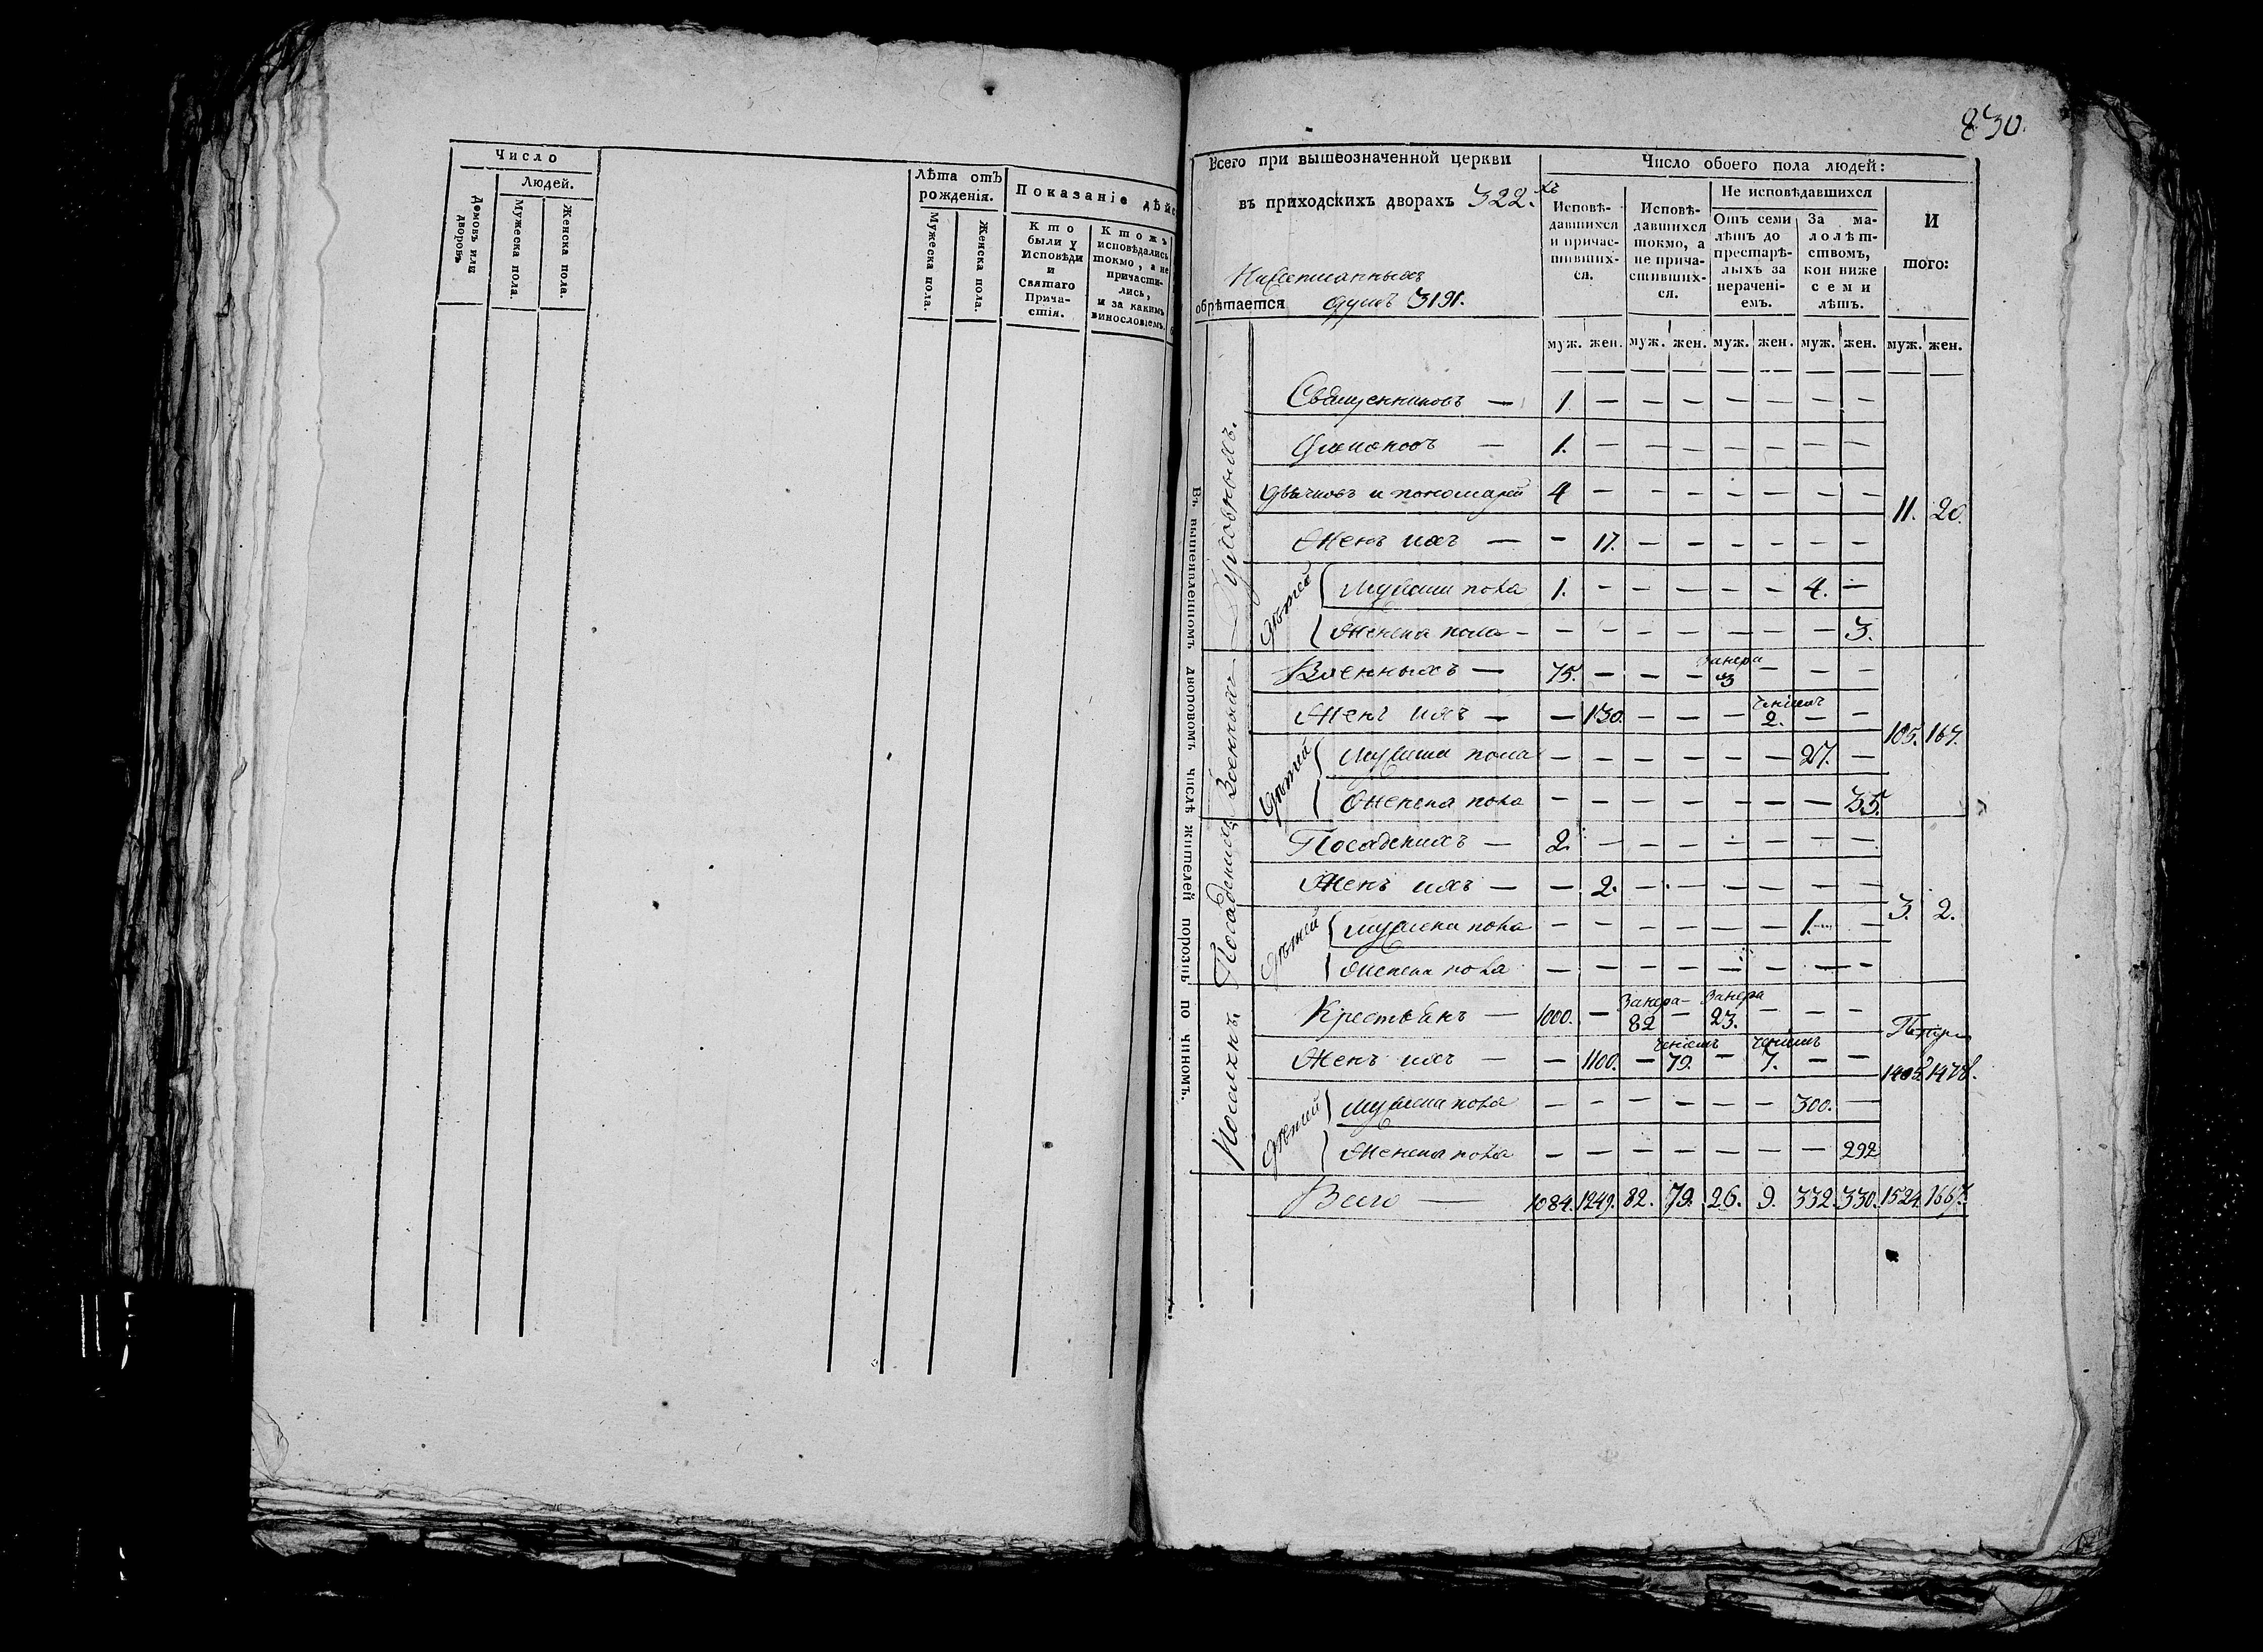 Число
Людей.
Домовъ или дворовъ
Мужеска пола.
Женска пола.
Лѣта отъ
рожденія.
Мужеска пола.
Женска пола.
Показаніе дѣйс
Кто
были у
Исповѣди
и
Святаго
Прича-
стія.
Ктожъ
исповѣдались
токмо, а не
причасти-
лись,
и за какимъ
винословіемъ.
830.
Всего при вышеозначенной церкви
въ приходскихъ дворахъ 322.хъ
обрѣтается душъ 3191.
Число обоего пола людей:
Исповѣ-
давшихся
и причас-
тивших-
ся.
Исповѣ-
давшихся
токмо, а
не прича-
стивших-
ся.
Не исповѣдавшихся
Отъ семи
лѣтъ до
престарѣ-
лыхъ за
нерачені-
емъ.
За ма-
лолѣт-
ствомъ,
кои ниже
семи
лѣтъ.
И
того:
муж. жен. муж. жен. муж. жен. муж. жен. муж. жен.
Въ вышеявленномъ дворовомъ числѣ жителей порознь по чиномъ.
Духовныхъ.
Священниковъ — 1. — — — — — — —
Діаконовъ — 1. — — — — — — —
Дьячковъ и пономарей 4 — — — — — — —
11. 20.
Женъ ихъ — — 17. — — — — — —
Дѣтей
Мужеска пола 1. — — — — — 4. —
Женска пола — — — — — — — — 3.
Военныхъ
Военныхъ — 75. — — — Занера 3 — — —
Женъ ихъ — — 130. — — — ченіемъ 2. — —
105. 167.
Дѣтей
Мужеска пола — — — — — — 27. —
Женска пола — — — — — — — 35.
Посадскихъ
Посадскихъ — 2. — — — — — — —
Женъ ихъ — — 2. — — — — — —
3. 2.
Дѣтей
Мужеска пола — — — — — — 1. —
Женска пола — — — — — — — —
Крестьянъ — 1000. — Занера- 82 — Занера 23. — — —
Женъ ихъ — — 1100. — ченіемъ 79. — ченіемъ 7. — —
1405. 1478.
Дѣтей
Мужеска пола — — — — — — 300. —
Женска пола — — — — — — — 292
Всего — 1084. 1249. 82. 79. 26. 9. 332. 330. 1524. 1667.